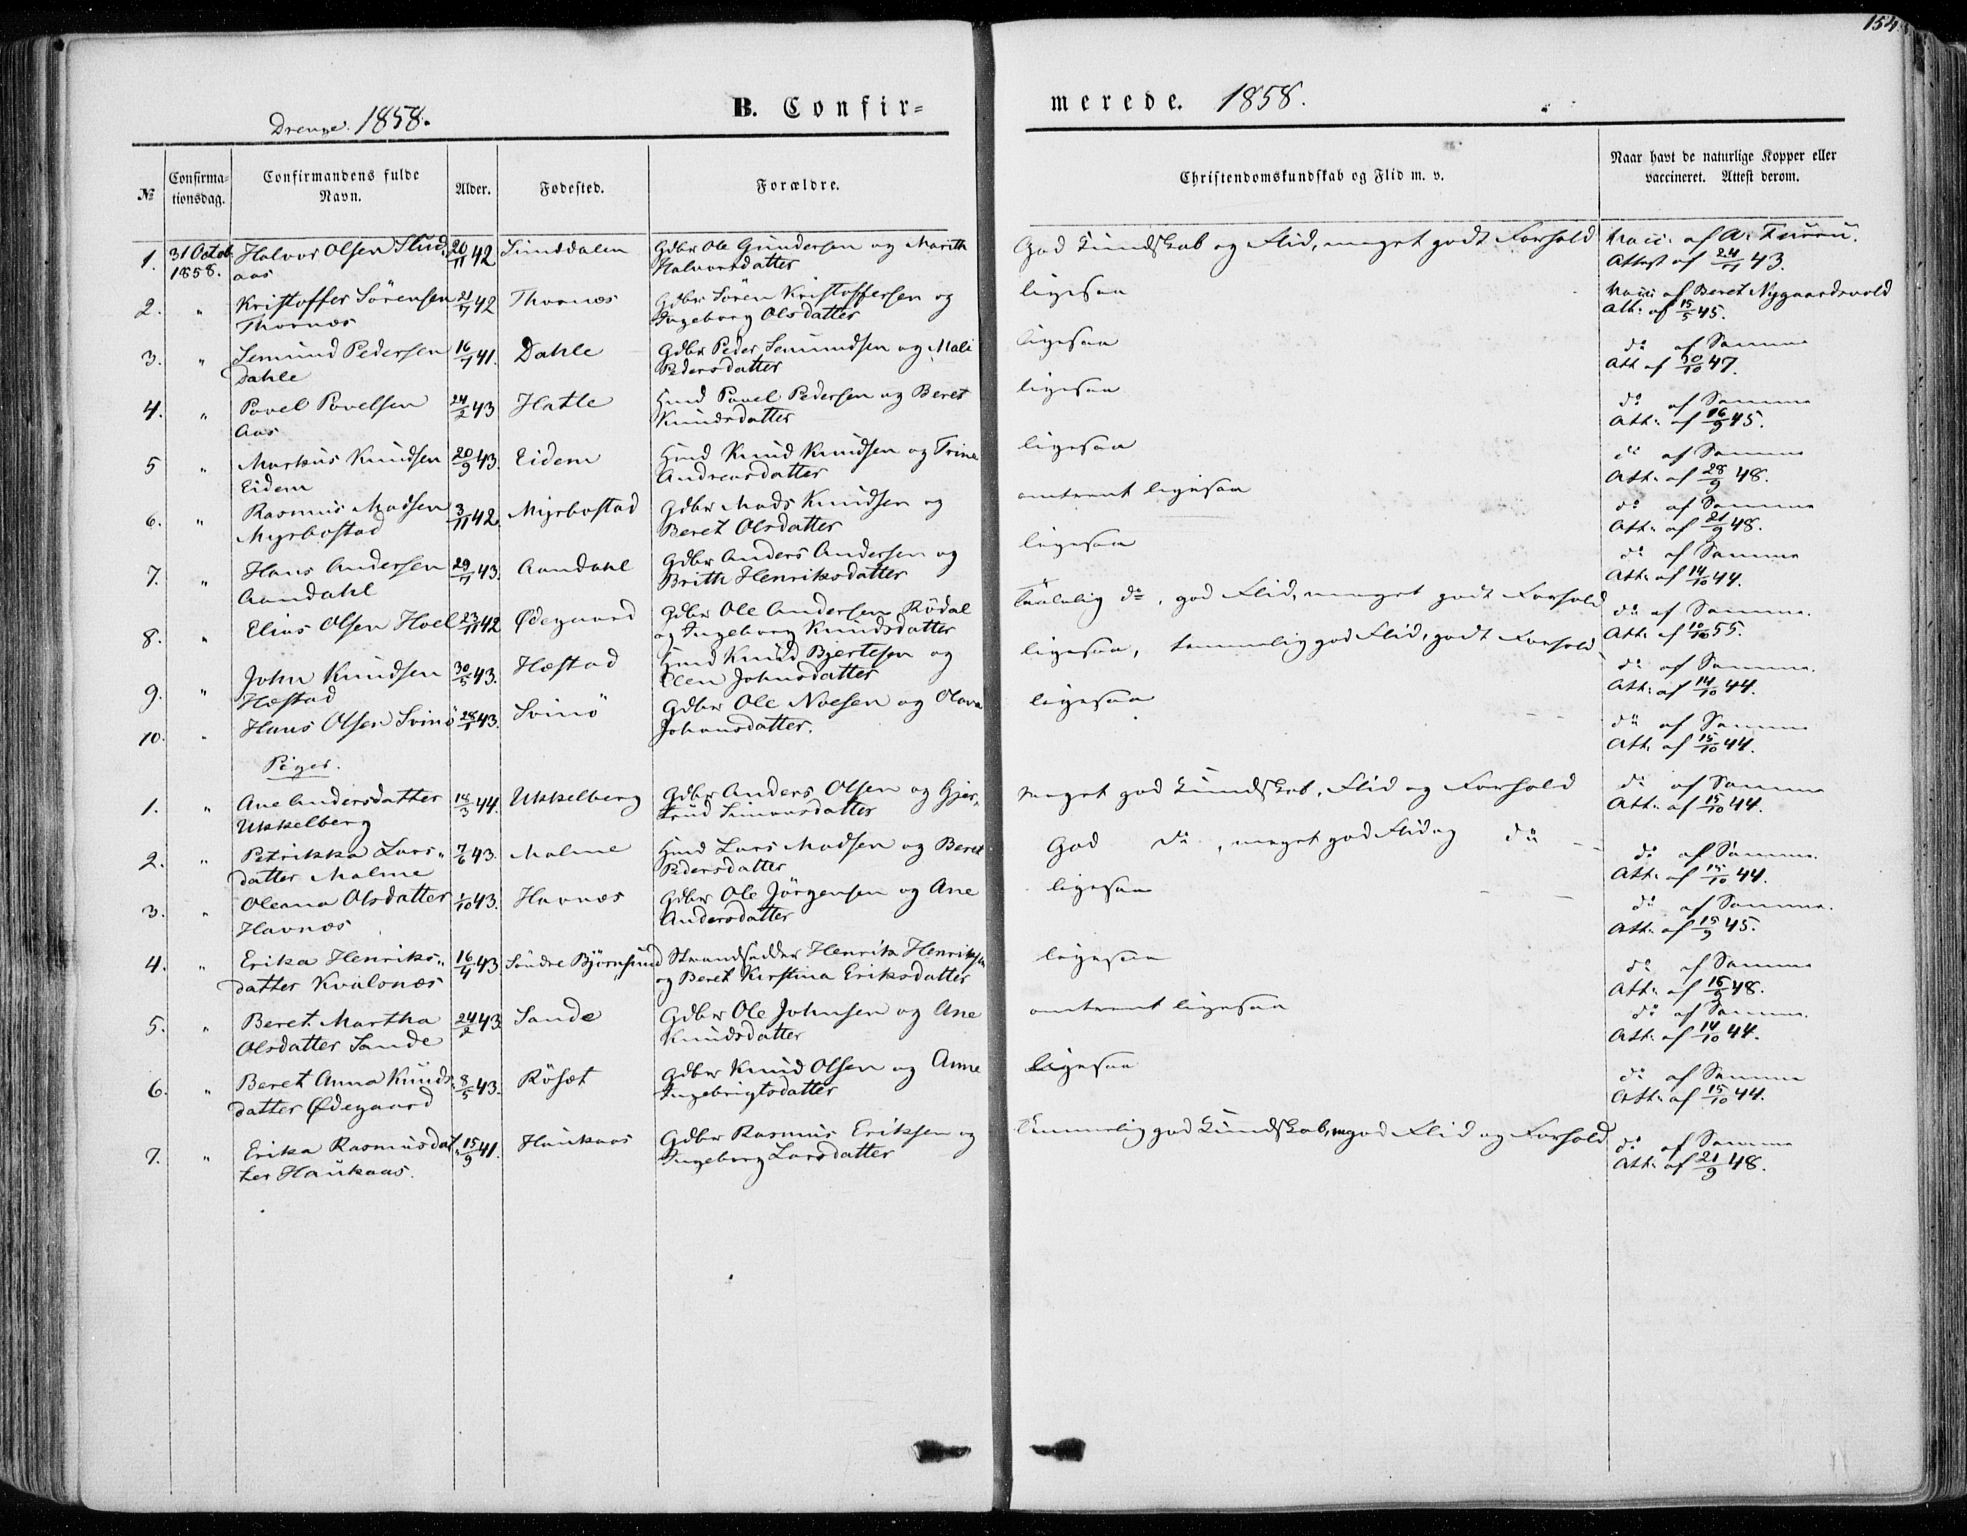 154
B. Confir=
merede. 1858.
Drenge. 1858.
№
Confirma=
tionsdag.
Confirmandens fulde
Navn.
Alder.
Fødested.
Forældre.
Christendomskundskab og Flid m. v.
Naar havt de naturlige Kopper eller
vaccineret. Attest derom.
1. 31 Octob. Halvor Olsen 20/11 42 Sunddalen Gdbr Ole Gundersen og Marith God Kundskab og Flid, meget godt Forhold Vacc: af A.
1858. aas Halvorsdatter Attest af 24/11 43.
2. " Kristoffer Sörensen 21/7 42 Thornæs Gdbr Sören Kristoffersen og ligesaa Vacc: af Beret Nygaardsvold
Thornæs Ingeborg Olsdatter Att: af 15/5 45.
3. " Semund Pedersen 16/7 41. Dahle Gdbr Peder Semundsen og Mali ligesaa do af Samme
Dahle Pedersdatter Att af 30/10 47.
4. " Povel Povelsen 24/2 43 Hatle Hmd Povel Pedersen og Beret ligesaa do af Samme
Aas Knudsdatter Att: af 16/9 45.
5 " Markus Knudsen 20/9 43. Eidem Hmd Knud Knudsen og Trine ligesaa do af Samme
Eidem Andreasdatter Att: af 28/9 48.
6. " Rasmus Madsen 3/11 42 Myrbostad Gdbr Mads Knudsen og omtrent ligesaa do af Samme
Myrbostad Beret Olsdatter Att: af 21/9 48.
7. " Hans Andersen 29/1 43. Aandahl Gdbr Anders Andersen og ligesaa do af Samme
Aandahl Brith Henriksdatter Att: af 14/10 44.
8. " Elias Olsen Hoel 23/11 42 Ødegaard Gdbr Ole Andersen Rödal Taalelig do, god Flid, meget godt Forhold do af Samme.
og Ingeborg Knudsdatter Att: af 10/10 55.
9. " John Knudsen 30/5 43. Hæstad Hmd Knud Bjertesen og ligesaa, temmelig god Flid, godt Forhold do af Samme.
Hæstad Elen Johnsdatter Att: af 14/10 44.
10. " Hans Olsen Svinö 28/1 43. Svinö Gdbr Ole Nielsen og Olava ligesaa do af Samme
Johansdatter. Att: af 15/10 44.
Piger.
1. " Ane Andersdatter 18/3 44. Ukkelberg Gdbr Anders Olsen og Gjer- Meget god Kundskab, Flid og Forhold do af Samme
Ukkelberg trud Simonsdatter Att: af 15/10 44.
2. " Petrikka Lars- 7/6 43. Malme Hmd Lars Madsen og Beret God do, meget god Flid og do do af Samme.
datter Malme Pedersdatter Att: af 15/10 44.
3. " Oleana Olsdatter 1/10 43. Havnæs Gdbr Ole Jörgensen og Ane ligesaa do af Samme.
Havnæs Andersdatter Att: af 15/9 45.
4. " Erika Henriks- 16/4 43 Söndre Björnsund Strandsidder Henrik Henriksen ligesaa do af Samme
datter Kvalsnæs og Beret Kirstina Eriksdatter Att: af 16/9 48.
5. " Beret Martha 24/2 43 Sande Gdbr Ole Johnsen og Ane omtrent ligesaa do af Samme.
Olsdatter Sande Knudsdatter Att: af 14/10 44.
6. " Beret Anna Knuds- 8/5 43. Rösæt Gdbr Knud Olsen og Anne ligesaa do af Samme
datter Ødegaard Ingebrigtsdatter Att: af 15/10 44.
7. " Erika Rasmusdat- 15/9 41. Haukaas Gdbr Rasmus Eriksen og Temmelig god Kundskab, god Flid og Forhold do af Samme
ter Haukaas. Ingeborg Larsdatter Att: af 21/9 48.